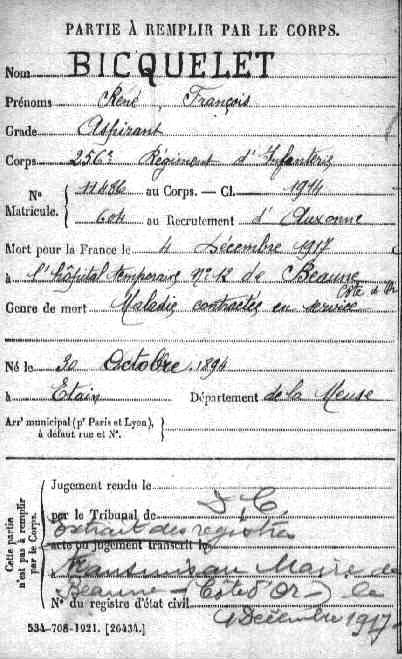 PARTIE À REMPLIR PAR LE CORPS.
Nom BICQUELET
Prénoms René François
Grade Aspirant
Corps 256e Régiment d'Infanterie
N° Matricule. 11486 au Corps. — Cl. 1914
604 au Recrutement d'Auxonne
Mort pour la France le 4 Décembre 1917
à l'hôpital temporaire N° 12 de Beaune
Côte d'Or
Genre de mort Maladie contractée en service
Né le 30 Octobre 1894
à Etain Département de la Meuse
Arrt municipal (pr Paris et Lyon),
à défaut rue et N°.
Cette partie n'est pas à remplir par le Corps.
Jugement rendu le
par le Tribunal de
Extrait des registres
acte ou jugement transcrit le
Transmis au Maire de
Beaune - (Côte d'Or -) le
N° du registre d'état civil
4 Décembre 1917 -
534-708-1921. [26434.]